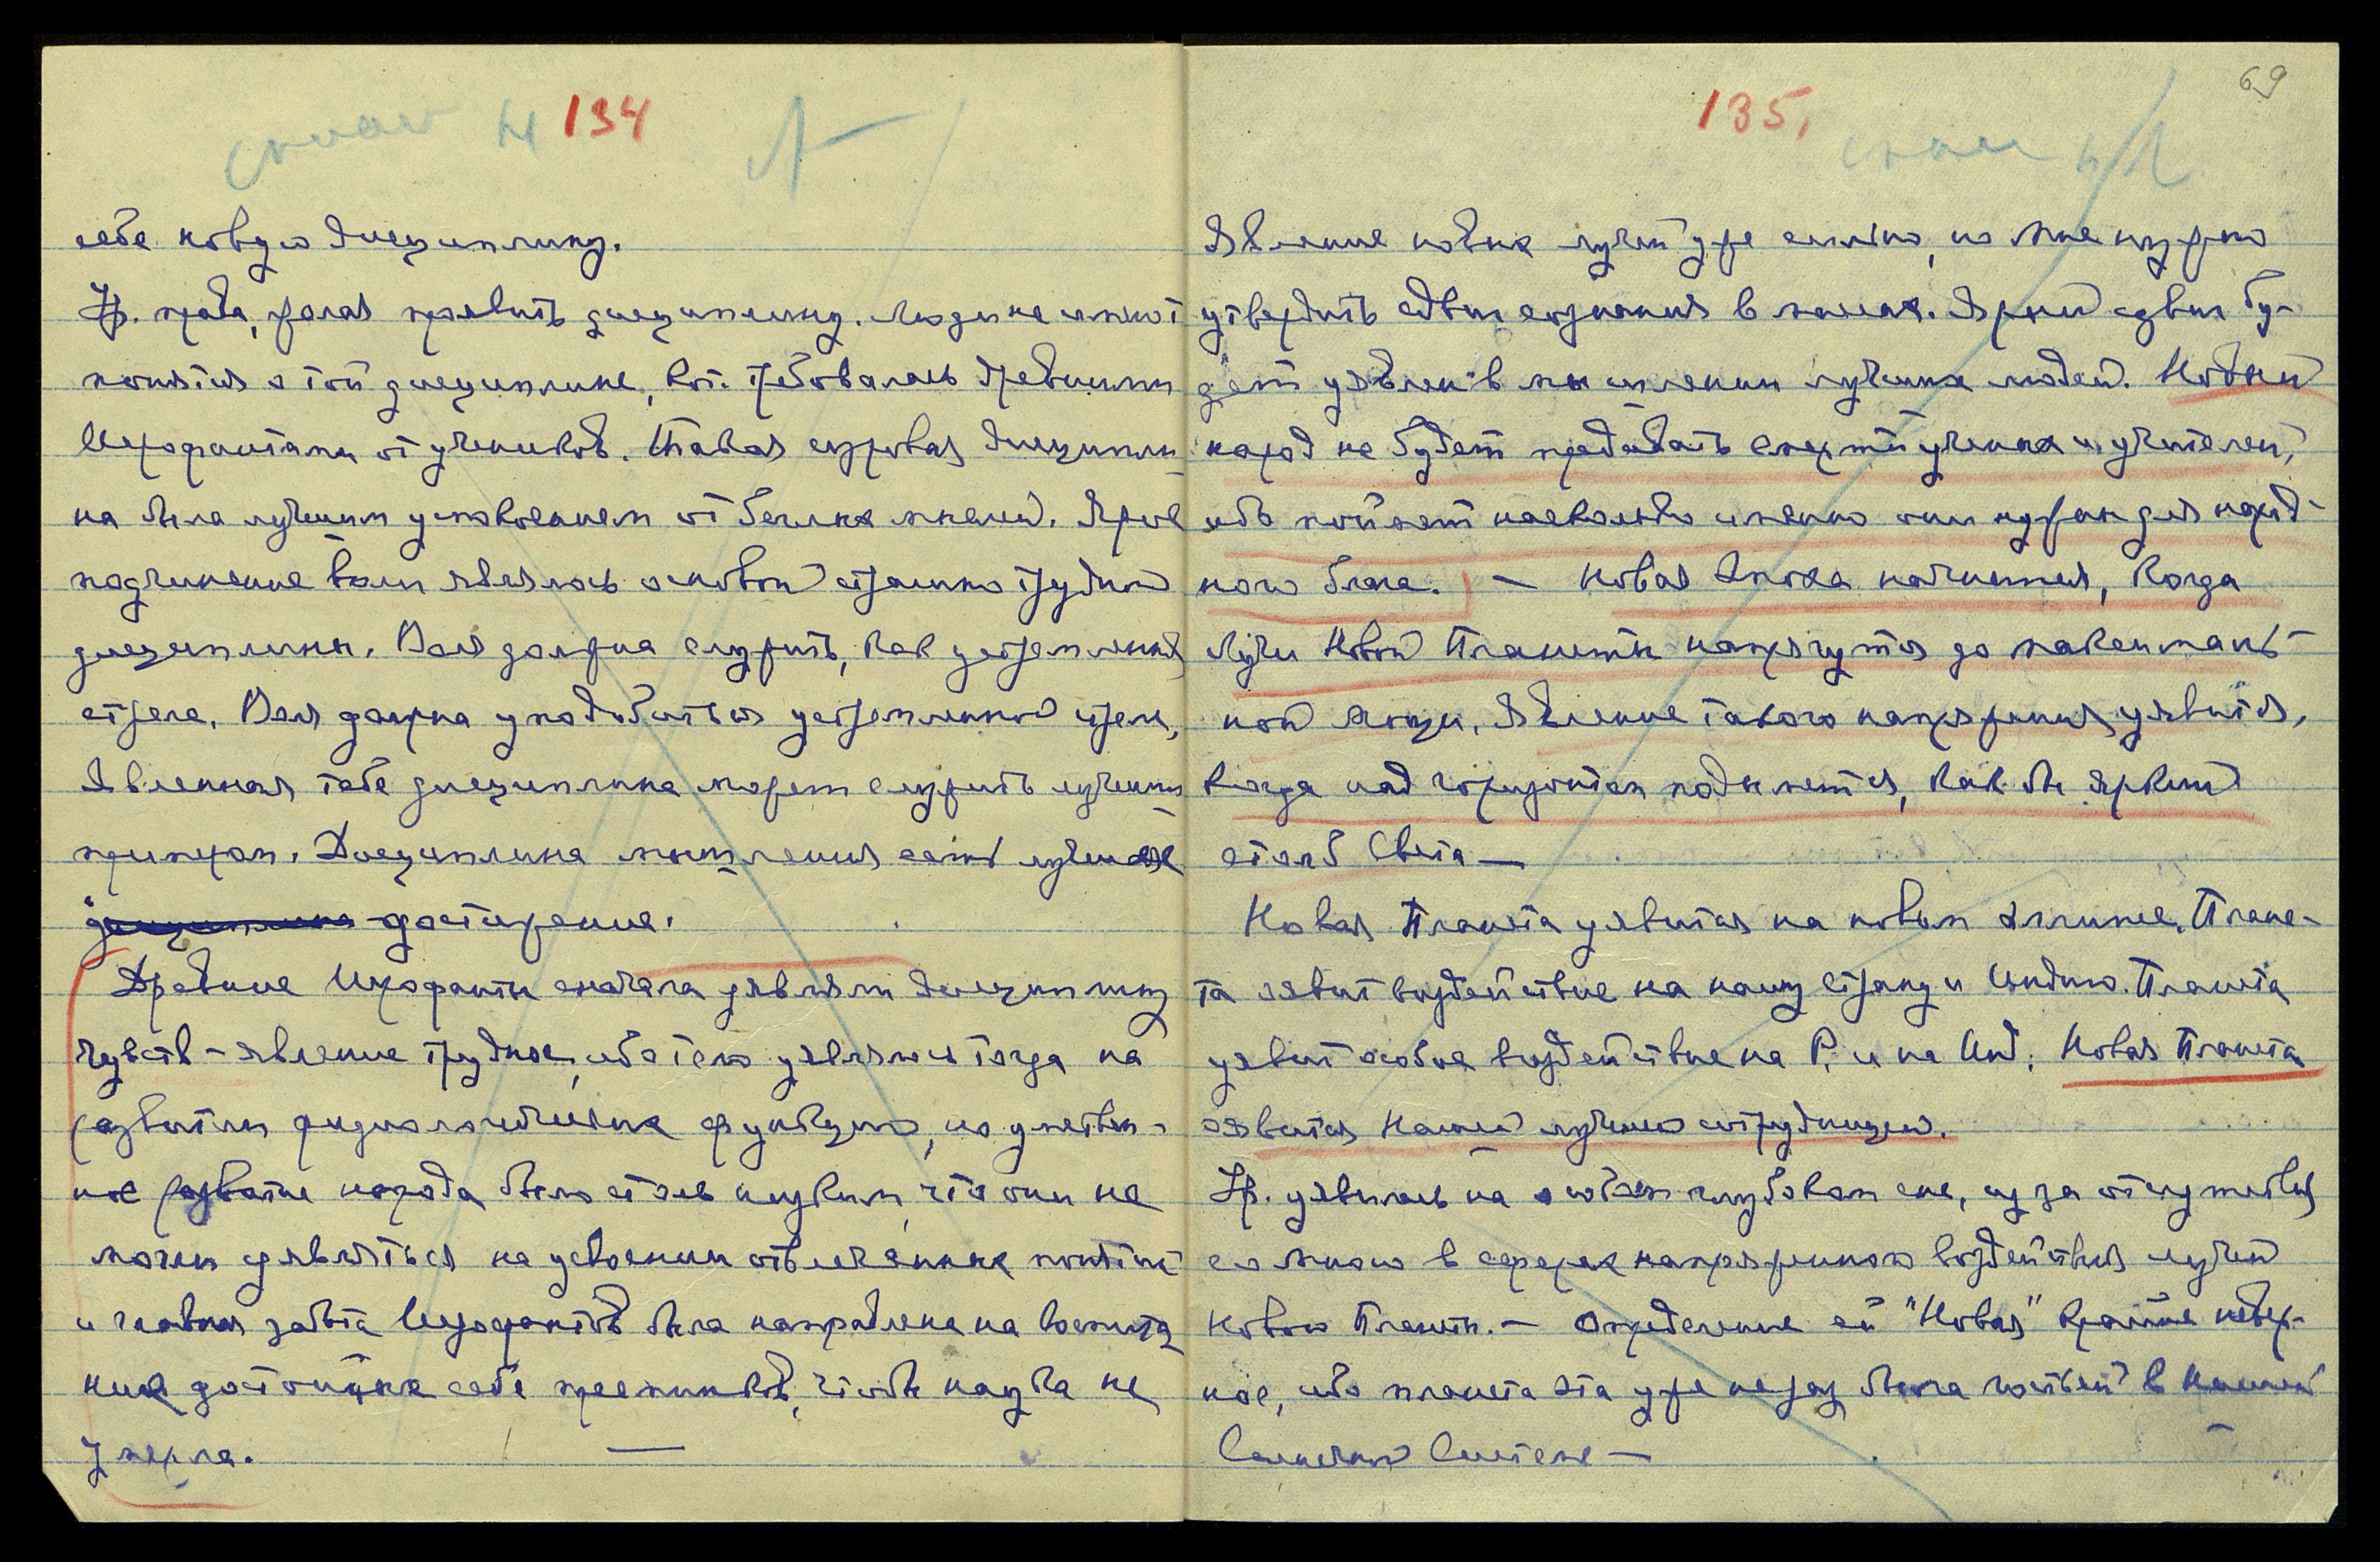 134
себе новую дисциплину.
Ур. права, желая проявить дисциплину. Люди не имеют
понятия о той дисциплине, кот. требовалась древними
Иерофантами от учеников. Такая суровая дисципли-
на была лучшим успокоением от беглых мыслей. Ярое
подчинение воли являлось основой страшно трудной
дисциплины. Воля должна служить, как устремленная
стрела. Воля должна уподобиться устремленной стреле,
Явленная тебе дисциплина может служить лучшим
примером. Дисциплина мышления есть лучшее
дисциплина достижение.
Древние Иерофанты сначала являли дисциплину
чувств – явление трудное, ибо тело уявлялось тогда на
развитии физиологических функций, но умствен-
ное развитие народа было столь низким, что они не
могли уявляться на усвоении отвлеченных понятий
и главная забота Иерофантов была направлена на воспита
ние достойных себе преемников, чтобы наука не
умерла. —
69
135,
Явление новых лучей уже сильно, но Мне нужно
утвердить сдвиг сознания в массах. Ярый сдвиг бу-
дет уявлен в мышлении лучших людей. Новый
народ не будет предавать смерти ученых и учителей,
ибо поймет насколько именно они нужны для народ-
ного блага. — Новая Эпоха начнется, когда
Лучи Новой Планеты напрягутся до максималь-
ной мощи. Явление такого напряжения уявится,
когда над горизонтом подымется, как бы яркий
столб Света —
Новая Планета уявится на новом эллипсе. Плане-
та явит воздействие на нашу страну и Индию. Планета
уявит особое воздействие на Р. и на Инд. Новая Планета
явится Нашей лучшей сотрудницей.
Ур. уявилась на особом глубоком сне, из за отсутствия
со Мною в сферах напряженного воздействия лучей
новой Планеты. — Определение ей "Новая" крайне невер-
ное, ибо планета эта уже не раз была гостьей в нашей
Солнечной Системе —